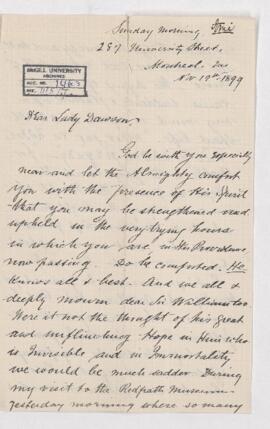 Sunday Morning
287 University Street,
Montreal. Que
Nov 19th 1899
McGILL UNIVERSITY
ARCHIVES
ACC. NO. 1463
REF.
Dear Lady Dawson,
God be with you especially
now and let the Almighty comfort
you with the presence of His Spirit
that you may be strengthened and
upheld in the very trying hours
in which you are in His Providence
now passing. Do be comforted. He
knows all & best. And we all &
deeply mourn dear Sir William too
Were it not the thought of his great
and unflinching Hope in Him who
is Invisible and in Immortality
we would be much sadder. During
my visit to the Redpath Museum
yesterday morning where so many